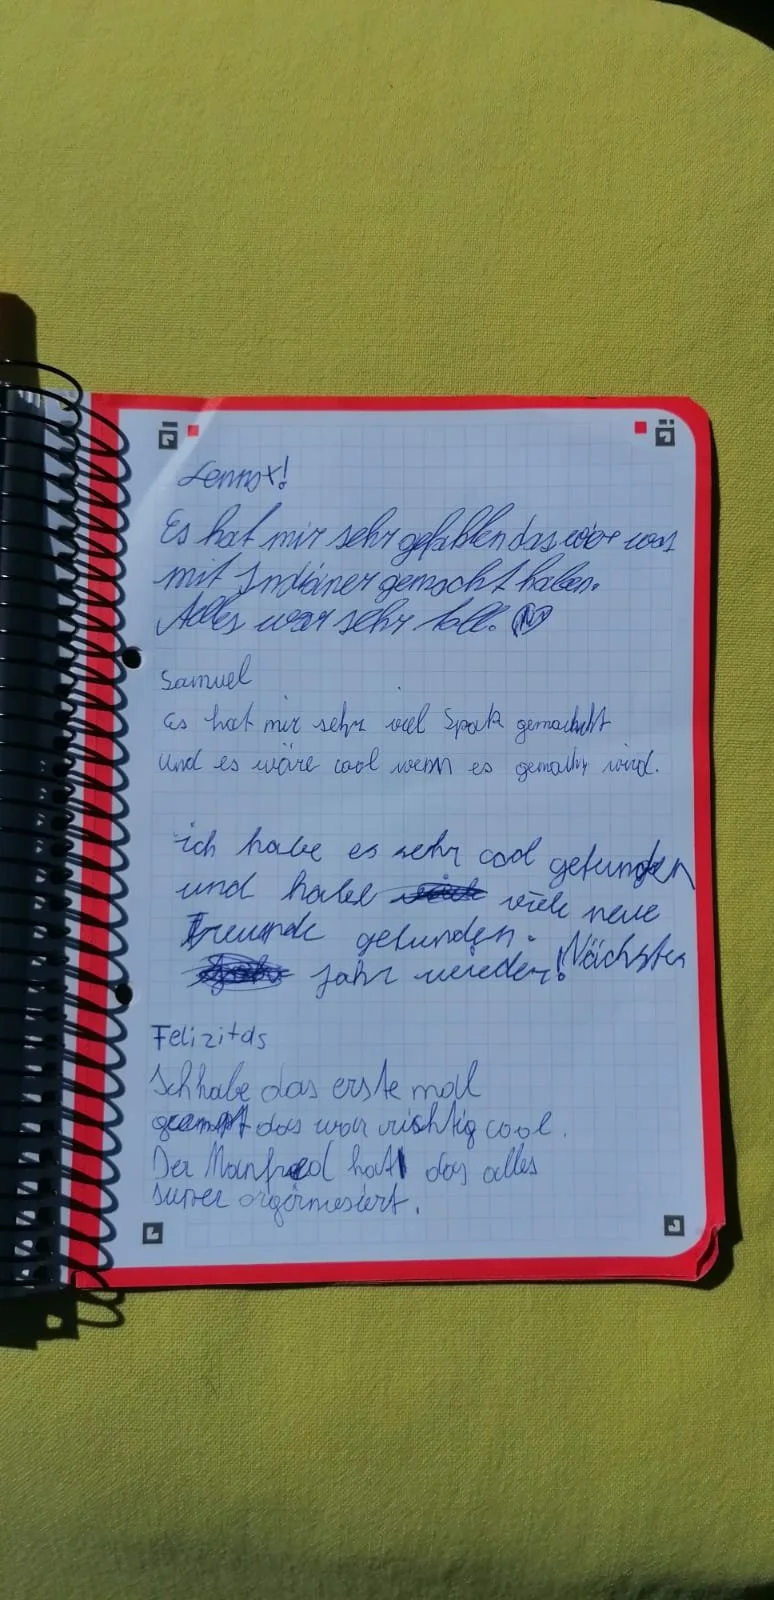 Lennox!
Es hat mir sehr gefahlen das wir was
mit Indianer gemacht haben.
Alles war sehr toll.
Samuel
es hat mir sehr viel Spaß gemacht
und es wäre cool wenn es gemacht wird.
ich habe es sehr cool gefunden
und habe viele neue
Freunde gefunden. Nächstes
jahr wieder!
Felizitas
Ich habe das erste mal
das war richtig cool.
Der Manfred hat das alles
super orgarnesiert.